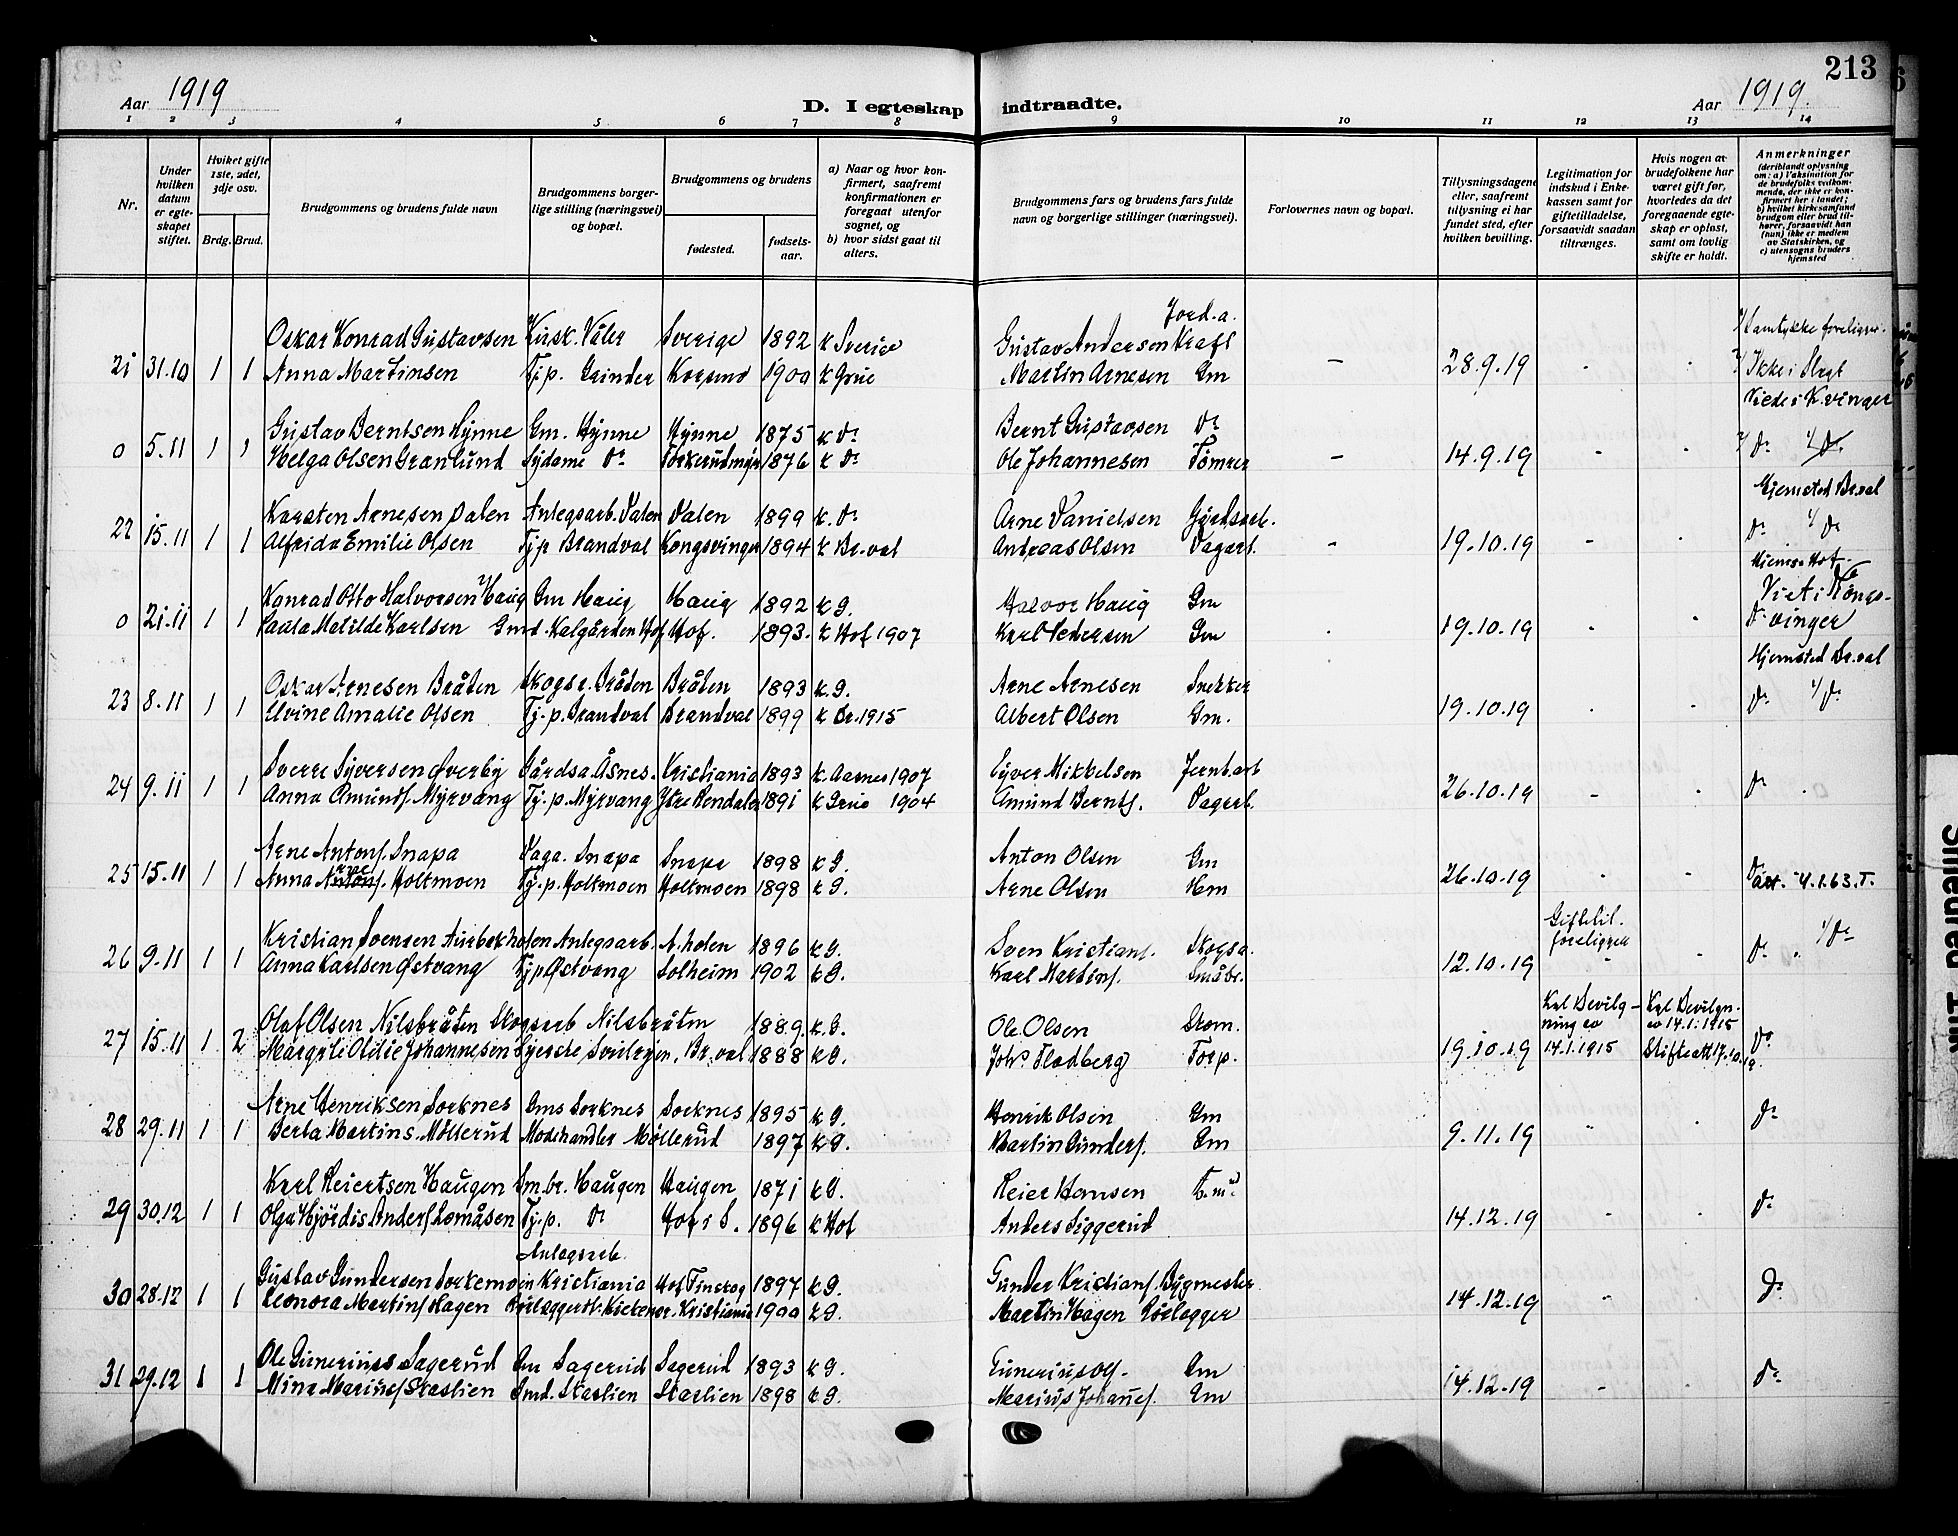 213
Aar 1919
D. I egteskap indtraadte.
Aar 1919.
1 2 3 4 5 6 7 8 9 10 11 12 13 14
Nr.
Under hvilken datum er egteskapet stiftet.
Hvilket gifte 1ste, 2det, 3dje osv.
Brdg. Brud.
Brudgommens og brudens fulde navn
Brudgommens borgerlige stilling (næringsvei) og bopæl.
Brudgommens og brudens
fødested.
fødselsaar.
a) Naar og hvor konfirmert, saafremt konfirmationen er foregaat utenfor sognet, og
b) hvor sidst gaat til alters.
Brudgommens fars og brudens fars fulde navn og borgerlige stillinger (næringsvei).
Forlovernes navn og bopæl.
Tillysningsdagene eller, saafremt tillysning ei har fundet sted, efter hvilken bevilling.
Legitimation for indskud i Enkekassen samt for giftetilladelse, forsaavidt saadan tiltrænges.
Hvis nogen av brudefolkene har været gift før, hvorledes da det foregaaende egteskap er opløst, samt om lovlig skifte er holdt.
Anmerkninger (deriblandt oplysning om: a) Vaksination for de brudefolks vedkommende, der ikke er konfirmert her i landet; b) hvilket kirkesamfund brudgom eller brud tilhører, forsaavidt han (hun) ikke er medlem av Statskirken, og c) utensogns bruders hjemsted
Jord.a.
Oskar Konrad Gustavsen Kusk. Våler Sverige 1892 k Sverige Gustav Andersen Krafl 1/ Samtykke foreligger.
21 31.10 1 1 Anna Martinsen Tj.p. Grinder Korsmo 1900 k Grue Martin Arnesen Gm – 28.9.19 2/ Ikke i Slegt
Viede i K.vinger
Gustav Berntsen Hynne Gm. Hynne Hynne 1875 k do Bernt Gustavsen do
0 5.11 1 1 Helga Olsen Granlund Sydame do Torkerudmyr 1876 k do Ole Johannesen Tømrer – 14.9.19 2/ do 1/ do
Hjemsted Br.val
Karsten Arnesen Dalen Anlegsarb. Dalen Dalen 1899 k. do Arne Danielsen Gårdsarb.
22 15.11 1 1 Alfrida Emilie Olsen Tj.p Brandval Kongsvinger 1894 k Br.val Andreas Olsen Dagarb. – 19.10.19 do 1/ do
Hjemst. Hof.
Konrad Otto Halvorsen Haug Gm Haug Haug 1892 k G. Halvor Haug Gm Viet i Kongs-
0 21.11 1 1 Paula Matilde Karlsen Gmd. Kalgården Hof Hof. 1893. k Hof 1907 Karl Pedersen Gm 19.10.19 do vinger
Hjemsted Br.val
Oskar Arnesen Bråten Skogsr. Bråten Bråten 1893 k. G. Arne Arnesen Snekker
23 8.11 1 1 Elvine Amalie Olsen Tj.p. Brandval Brandval 1899 k Br. 1915 Albert Olsen Gm. 19.10.19 do 1/ do
Sverre Syversen Øverby Gårdsa. Åsnes. Kristiania 1893 k. Aasnes 1907 Syver Mikkelsen Jernb.arb
24 9.11 1 1 Anna Amunds. Myrvang Tj.p. Myrvang Ytre Rendalen 1891 k Grue 1904 Amund Bernts. Dagarb. 26.10.19 do
Arne Antons. Snapa Daga. Snapa Snapa 1898 k G. Anton Olsen Gm
25 15.11 1 1 Anna Arnes. Holtmoen Tj.p. Holtmoen Holtmoen 1898 k G. Arne Olsen Hm 26.10.19 do 4.1.63. T.
Giftetil.
Kristian Svensen Aurbekholen Anlegsarb. A.holen 1896 k G. Sven Kristians. Skogsa. foreligger 1/ do
26 9.11 1 1 Anna Karlsen Østvang Tj.p Østvang Solheim 1902 k G. Karl Martins. Småbr. 12.10.19 do
Olaf Olsen Nilsbråten Skogsarb Nilsbråten 1889 k. G. Ole Olsen Skom. Kgl Bevilgning av Kgl Bevilgn. av 14.1.1915
27 15.11 1 2 Margit Otilie Johannesen Br.val 1888 k G. Johs Flodberg Torp. 19.10.19 14.1.1915 Skifteatt 17.10.19. do
Arne Henriksen Sorknes Gms Sorknes Sorknes 1895 k G. Henrik Olsen Gm
28 29.11 1 1 Berta Martins. Møllerud Modehandler Møllerud 1897 k G. Martin Gunders. Gm 9.11.19 do
Karl Reiertsen Haugen Sm.br. Haugen Haugen 1871 k G. Reier Hansen
29 30.12 1 1 Olga Hjördis Anders. Tj.p. do Hof i S. 1896 k Hof Anders Siggerud 14.12.19 do
Anlegsarb.
Gustav Gundersen Sorkemoen Kristiania Hof Finskog 1897 k G. Gunder Kristians. Bygmester
30 28.12 1 1 Leonora Martins Hagen Kristiania 1900 k G. Martin Hagen Rørlegger 14.12.19 do
Ole Guneriuss Sagerud Gm Sagerud Sagerud 1893 k G. Gunerius Ols. Gm
31 29.12 1 1 Mina Marius. Skaslien Gmd. Skaslien Skaslien 1898 k G. Marius Johans. Gm 14.12.19 do